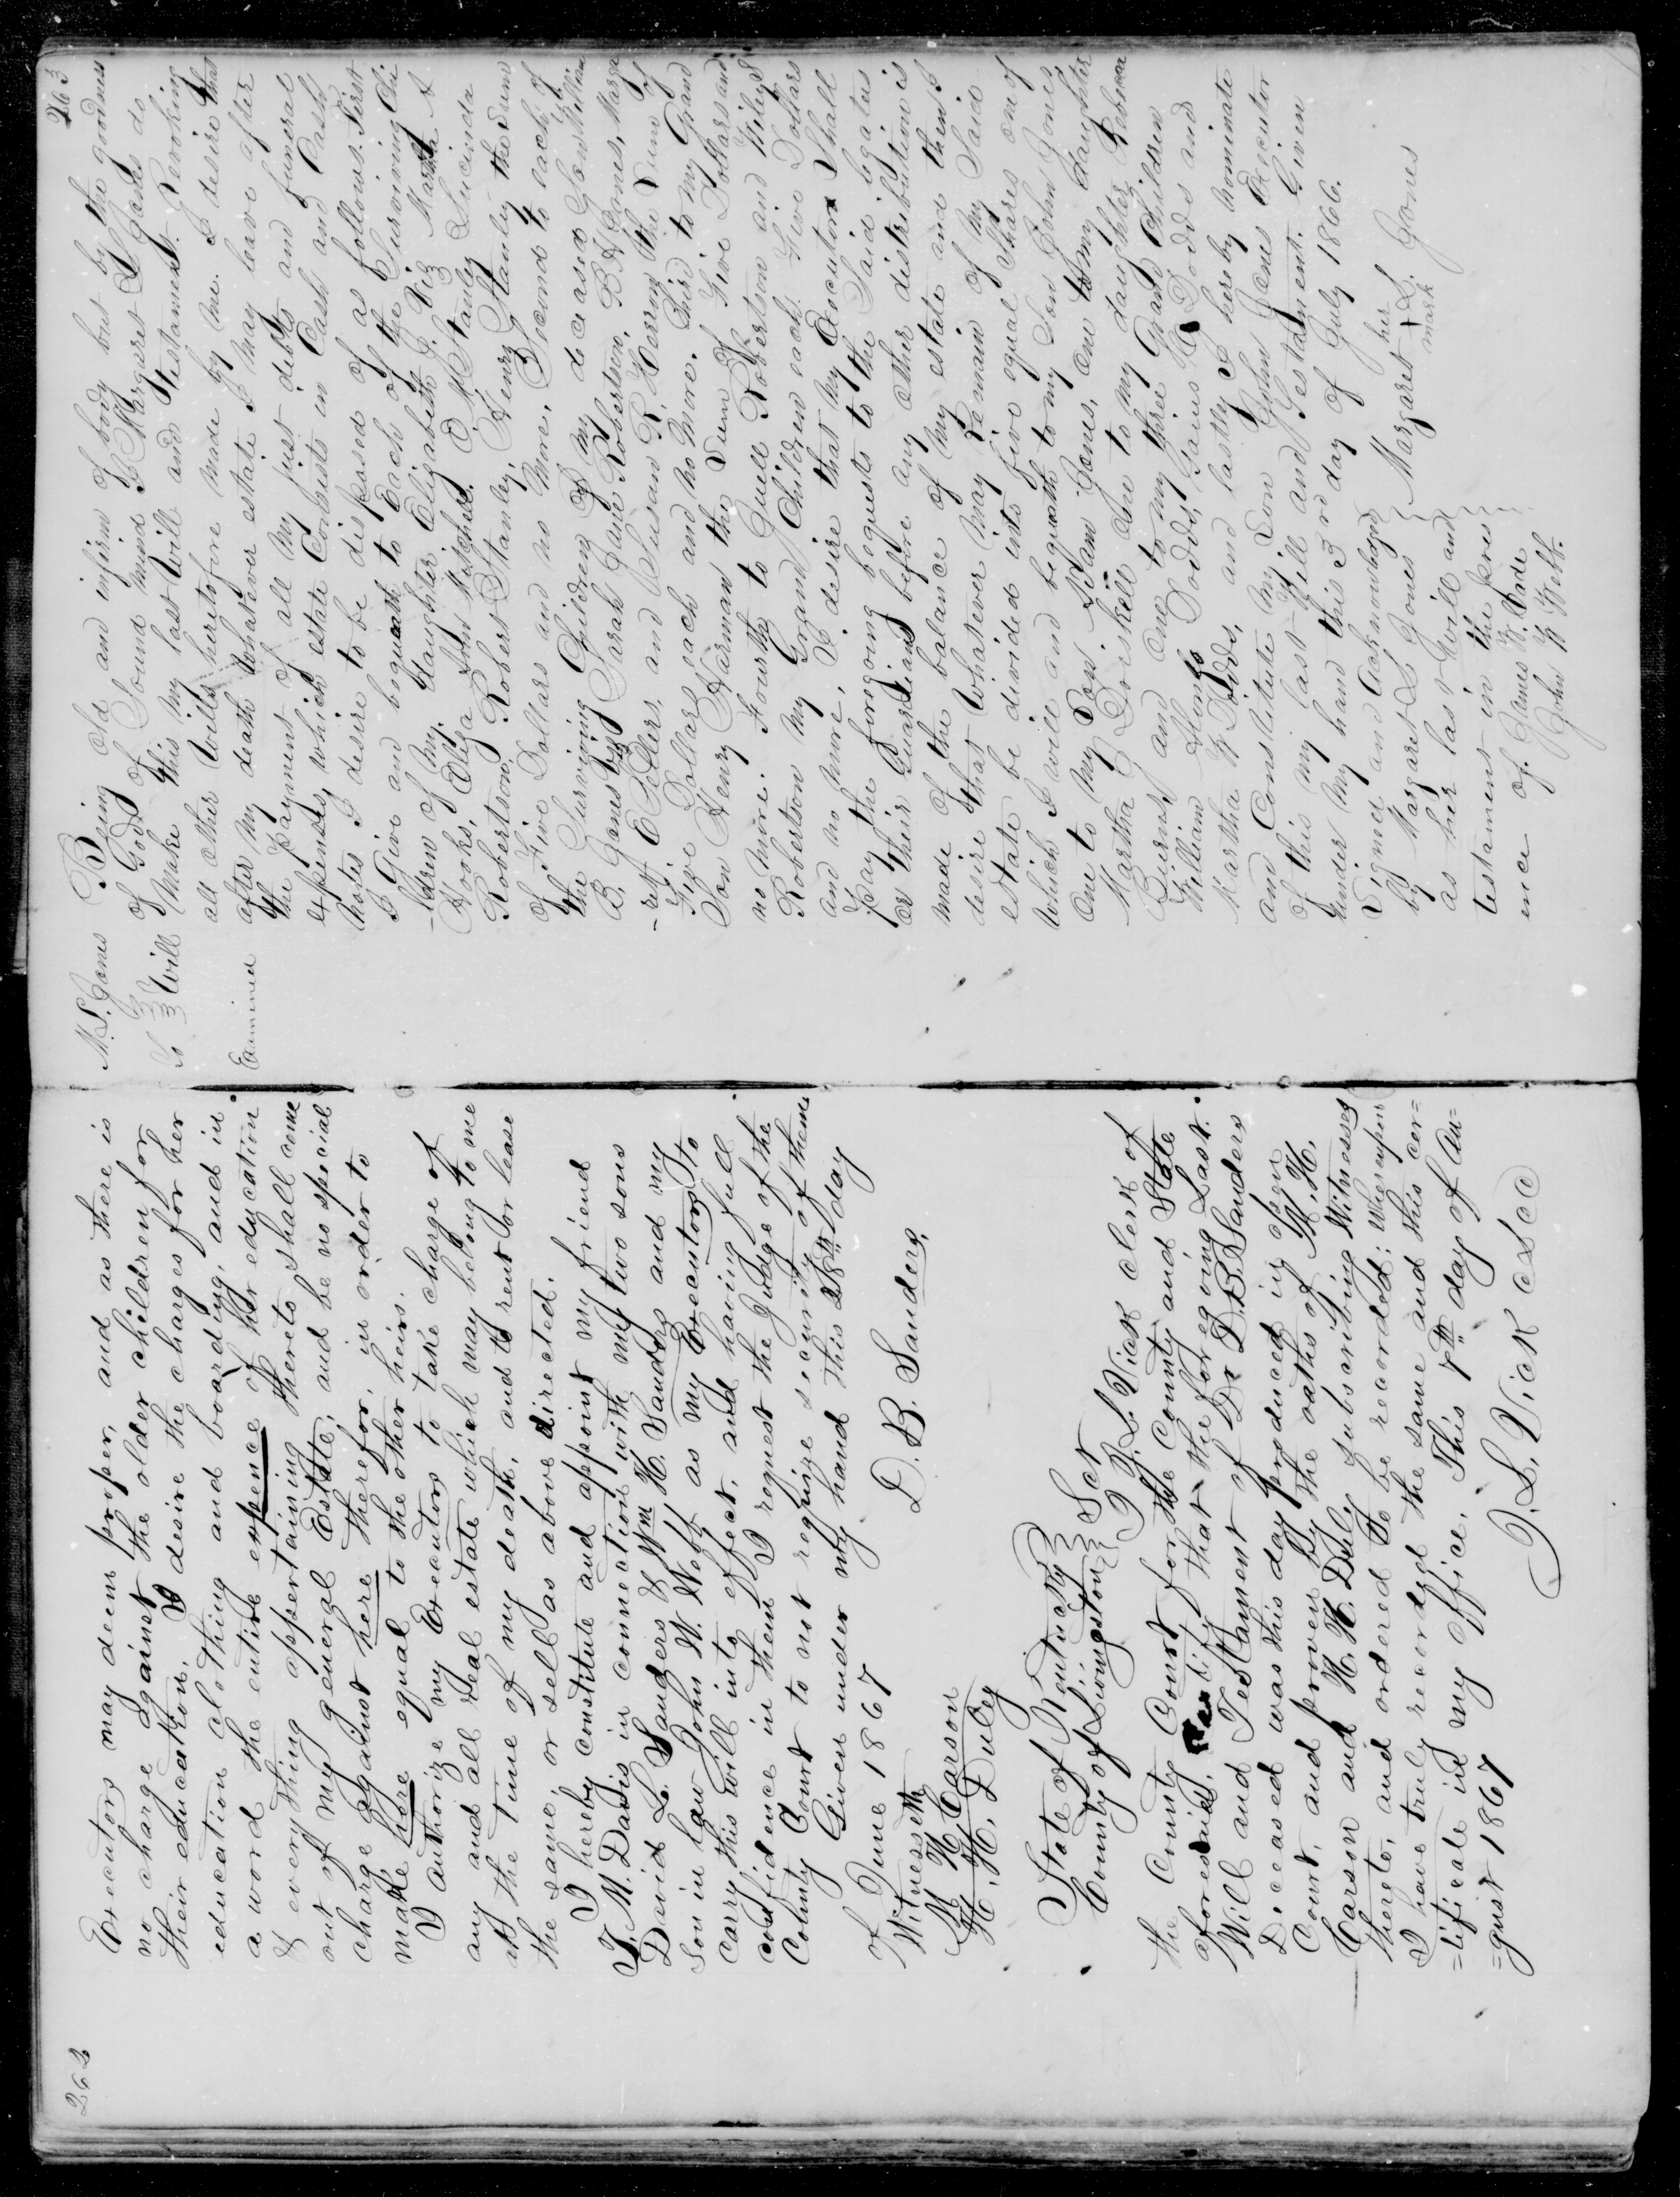 262
Executors may deem proper, and as there is
no charge against the older children for
their education, I desire the charges for her
education clothing and boarding, and in
a word the entire expence of her education
& every thing appertaining thereto shall come
out of my general Estate, and be no special
charge against here therefor, in order to
make here equal to the other heirs.
I authorize my Executors to take charge of
any and all real estate which may belong to me
at the time of my death, and to rent or lease
the same, or sell as above directed.
I hereby constitute and appoint my friend
T. M. Davis in connection with my two sons
David L. Sanders & Wm H. Sanders and my
Son in law John W. Webb as my Executors to
carry this will into effect, and having full
confidence in them I request the Judge of the
County Court to not require security of them
Given under my hand this 28th day
of June 1867
D. B. Sanders
Witnesseth
W H Carson
H. H. Duley
State of Kentucky } Sct
County of Livingston }
I J. L. Vick clerk of
the County Court for the County and State
aforesaid, certify that the foregoing Last
Will and Testament of Dr D. B. Sanders
Deceased was this day produced in open
Court, and proven by the oaths of W. H.
Carson and H. H. Duly subscribing Witnesses
thereto, and ordered to be recorded; Whereupon
I have truly recorded the same and this cer=
=tificate in my office. This 7th day of Au=
=gust 1867
J. L. Vick c L c c
263
M. L. Jones
To } Will
Examined
Being old and infirm of body but by the goodness
of God of Sound mind I Margaret L Jones do
make this my last Will and Testament. Revoking
all other Wills heretofore made by me. I desire that
after my death whatever estate I may leave after
the payment of all my just debts and funeral
expenses, which estate Consists in Cash and Cash
notes I desire to be disposed of as follows. First
I Give and bequeath to Each of the Surviving Chi
-ldren of my daughter Elizabeth J. Viz Martha A
Hooks, Eliza Ann Matchel. O. M Stanley Lucinda
Robertson, Robert Stanley, Henry Stanley the Sum
of Five Dollars and no more, Second to each of
the Surviving Children of my deceased Son William
B. Jones Viz Sarah Jane Robertson, B A Jones, Marga
-rett E Sellers, and Susan R. Herrin the Sum of
Five Dollars each and no more. Third to my Grand
Son Henry Harman the Sum of Five Dollars and
no more. Fourth to Quill Robertson and Wiley S
Robertson my Grand Children each Five Dollars
and no more, I desire that my Executor Shall
pay the foregoing bequests to the Said legatees
or their Guardians before any other distribution is
made of the balance of my estate and then I
desire that whatever may remain of my Said
estate be divided into five equal Shares one of
which I will and bequeath to my Son John Jones
One to my Son Adam Jones, one to my daughter
Martha G Driskill one to my daughter Rebecca
Burns, and one to my three Grand Children
William Dodds, Gaius Dodds and
Martha W Dodds, and lastly I hereby nominate
and Constitute my Son John Jones Executor
of this my last Will and Testament. Given
under my hand this 3rd day of July 1866.
Signed and Acknowledged
by Margaret L Jones
as her last Will and
testament in the pres
ence of James W. Wade
John W Webb.
her
Margaret X L. Jones
mark